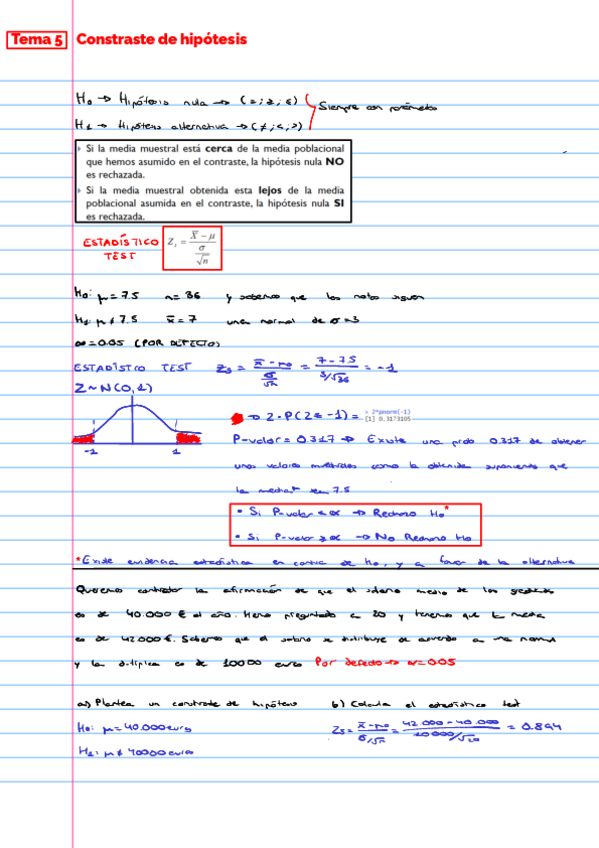 Tema 5 Constraste de hipótesis
H₀ → Hipótesis nula → (=; ≥; ≤)
Siempre con parámetros
H₁ → Hipótesis alternativa → (≠; <; >)
› Si la media muestral está cerca de la media poblacional
que hemos asumido en el contraste, la hipótesis nula NO
es rechazada.
› Si la media muestral obtenida esta lejos de la media
poblacional asumida en el contraste, la hipótesis nula SI
es rechazada.
ESTADÍSTICO
TEST
Z_s = (X̄ − μ) / (σ/√n)
H₀: μ = 7.5 n = 36 y sabemos que las notas siguen
H₁: μ ≠ 7.5 x̄ = 7 una normal de σ = 3
α = 0.05 (POR DEFECTO)
ESTADÍSTCO TEST Z_s = (x̄ − μ₀) / (σ/√n) = (7 − 7.5) / (3/√36) = −1
Z ~ N(0,1)
→ 2 · P(Z ≤ −1) =
> 2*pnorm(-1)
[1] 0.3173105
-1 1
P-valor = 0.317 → Existe una prob 0.317 de obtener
unos valores muestrales como la obtenida suponiendo que
la media sea 7.5
• Si P-valor < α → Rechazo H₀*
• Si P-valor ≥ α → No Rechazo H₀
*Existe evidencia estadística en contra de H₀, y a favor de la alternativa
Queremos contrastar la afirmación de que el salario medio de los graduados
es de 40.000 € al año. Hemos preguntado a 20 y tenemos que la media
es de 42.000 €. Sabemos que el salario se distribuye de acuerdo a una normal
y la d.típica es de 10000 euros Por defecto → α = 0.05
a) Plantea un constraste de hipótesis
b) Calcula el estadístico test
H₀: μ = 40.000 euros
Z_s = (x̄ − μ₀) / (σ/√n) = (42.000 − 40.000) / (10000/√20) = 0.894
H₁: μ ≠ 40000 euros